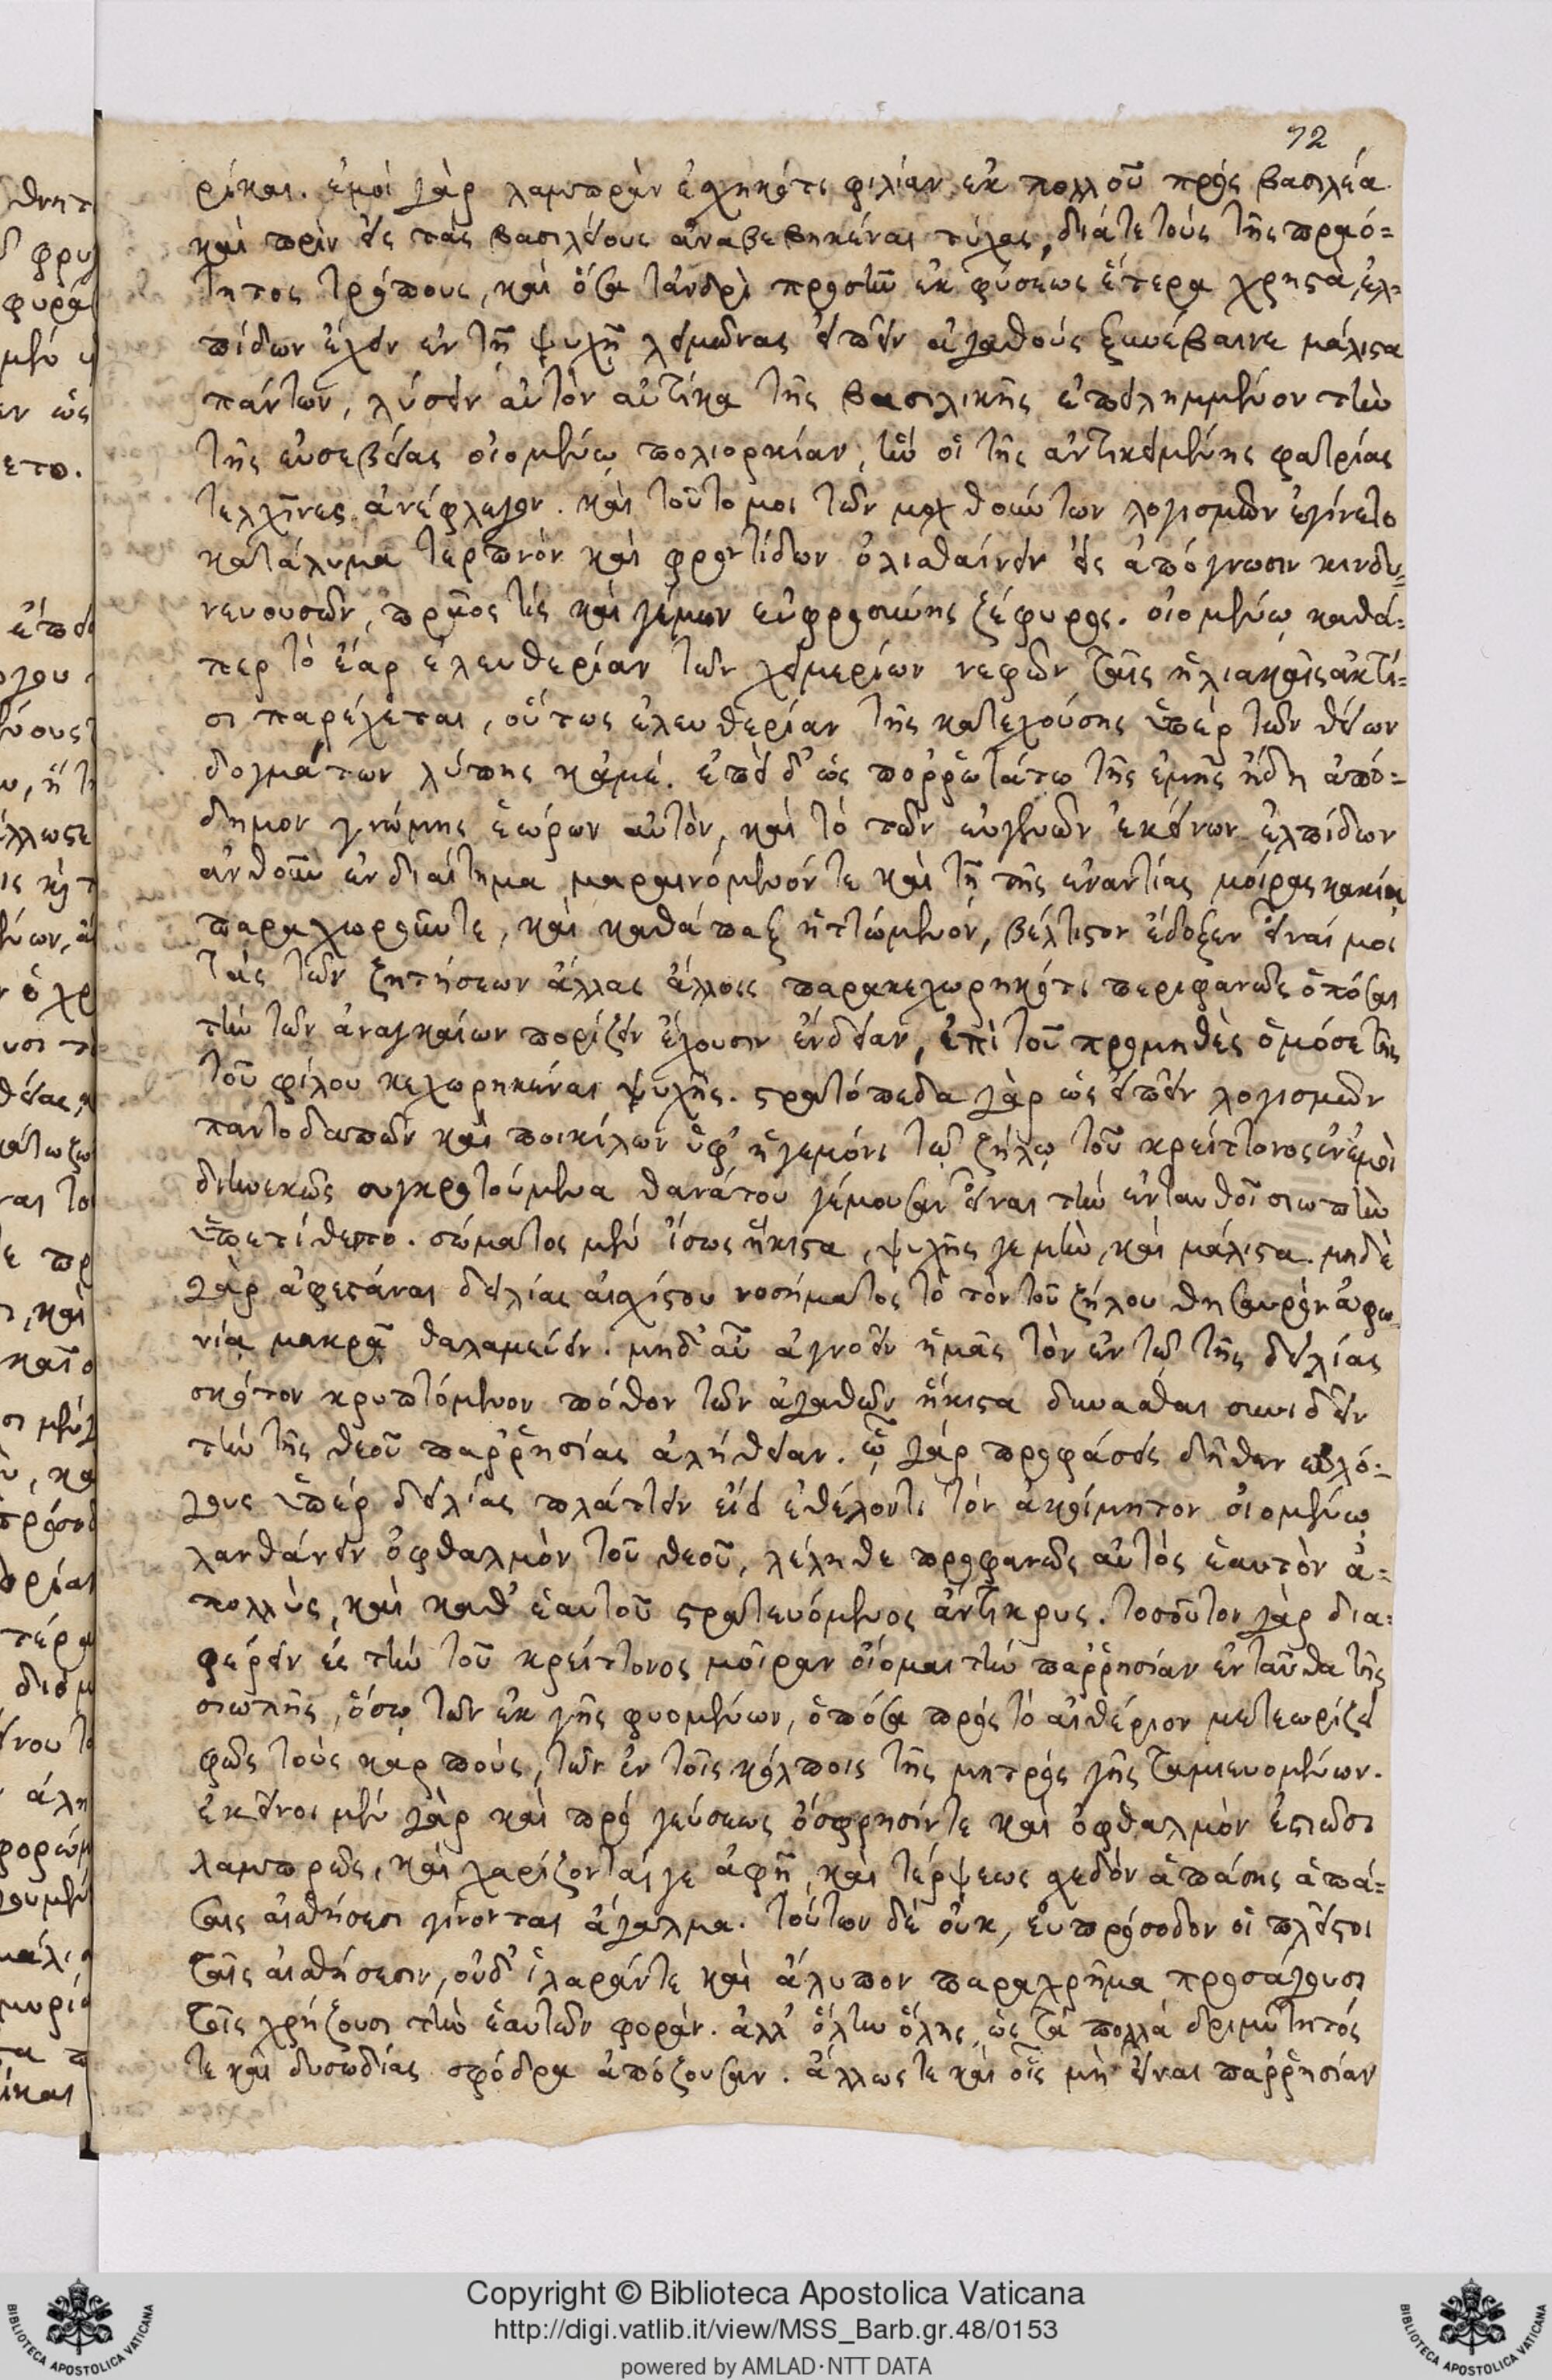 72
ρίκαι. ἐμοὶ γὰρ λαμπρὰν ἐσχηκότι φιλίαν ἐκ πολλοῦ πρὸς βασιλέα
καὶ πρὶν εἰς τὰς βασιλείους ἀναβεβηκέναι τύχας, διά τε τοὺς τῆς πραό-
τητος τρόπους, καὶ ὅσα τἀνδρὶ προσῆν ἐκ φύσεως ἕτερα χρηστὰ, ἐλ-
πίδων ἔχειν ἐν τῇ ψυχῇ λειμῶνας εἰπεῖν ἀγαθοὺς ξυνέβαινε μάλιστα
πάντων, λύσειν αὐτὸν αὐτίκα τῆς βασιλικῆς ἐπειλημμένον τὴν
τῆς εὐσεβείας οἰομένῳ πολιορκίαν, ἣν οἱ τῆς ἀντικειμένης φατρίας
τελχῖνες ἀνέφλεγον. καὶ τοῦτό μοι τῶν μοχθούντων λογισμῶν ἐγίνετο
κατάλυμα τερπνὸν καὶ φροντίδων ὀλισθαίνειν εἰς ἀπόγνωσιν κινδυ-
νευουσῶν, πρᾶός τις καὶ γέμων εὐφροσύνης ζέφυρος. οἰομένῳ καθά-
περ τὸ ἔαρ ἐλευθερίαν τῶν χειμερίων νεφῶν ταῖς ἡλιακαῖς ἀκτί-
σι παρέχεται, οὕτως ἐλευθερίαν τῆς κατεχούσης ὑπὲρ τῶν θείων
δογμάτων λύπης κἀμέ. ἐπεὶ δ' ὡς πορρωτάτω τῆς ἐμῆς ἤδη ἀπό-
δημον γνώμης ἑώρων αὐτὸν, καὶ τὸ τῶν εὐγενῶν ἐκείνων ἐλπίδων
ἀνθοῦν ἐνδιαίτημα μαραινόμενόν τε καὶ τῇ τῆς ἐναντίας μοίρας κακίᾳ
παραχωροῦν τε, καὶ καθάπαξ ἡττώμενον, βέλτιστον ἔδοξεν εἶναί μοι
τὰς τῶν ζητήσεων ἄλλας ἄλλοις παρακεχωρηκότι περιφανῶς ὁπόσαι
τὴν τῶν ἀναγκαίων πορίζειν ἔχουσιν ἔνδειαν, ἐπὶ τοῦ προμηθὲς ὁμόσε τῆς
τοῦ φίλου κεχωρηκέναι ψυχῆς. στρατόπεδα γὰρ ὡς εἰπεῖν λογισμῶν
παντοδαπῶν καὶ ποικίλων ὑφ' ἡγεμόνι τῷ ζήλῳ τοῦ κρείττονος ἐν ἐμοὶ
διηνεκῶς συγκροτούμενα θανάτου γέμουσαν εἶναι τὴν ἐνταυθοῖ σιωπὴν
ὑπετίθεντο. σώματος μὲν ἴσως ἥκιστα, ψυχῆς γε μὴν, καὶ μάλιστα. μηδὲ
γὰρ ἀφεστάναι δειλίας αἰσχίστου νοσήματος τὸ τὸν τοῦ ζήλου θησαυρὸν ἀφω-
νίᾳ μακρᾷ θαλαμεύειν. μηδ' αὖ ἀγνοεῖν ἡμᾶς τὸν ἐν τῷ τῆς δειλίας
σκότον κρυπτόμενον πόθον τῶν ἀγαθῶν ἥκιστα δύνασθαι συνιδεῖν
τὴν τῆς θεοῦ παρρησίας ἀλήθειαν. ᾧ γὰρ προφάσεις δῆθεν εὐλό-
γους ὑπὲρ δειλίας πλάττειν εἴσι ἐθέλοντι τὸν ἀκοίμητον οἰομένῳ
λανθάνειν ὀφθαλμὸν τοῦ θεοῦ, λέληθε προφανῶς αὐτὸς ἑαυτὸν ἀ-
πολλὺς, καὶ καθ' ἑαυτοῦ στρατευόμενος ἄντικρυς. τοσοῦτον γὰρ δια-
φέρειν εἰς τὴν τοῦ κρείττονος μοῖραν οἴομαι τὴν παρρησίαν ἐνταῦθα τῆς
σιωπῆς, ὅσῳ τῶν ἐκ γῆς φυομένων, ὁπόσα πρὸς τὸ αἰθέριον μετεωρίζει
φῶς τοὺς καρποὺς, τῶν ἐν τοῖς κόλποις τῆς μητρὸς γῆς ταμιευομένων.
ἐκεῖνοι μὲν γὰρ καὶ πρὸ γεύσεως ὄσφρησίν τε καὶ ὀφθαλμὸν ἑστιῶσι
λαμπρῶς, καὶ χαρίζονταί γε ἁφῇ, καὶ τέρψεως σχεδὸν ἁπάσης ἁπά-
σαις αἰσθήσεσι γίνονται ἄγαλμα. τούτων δὲ οὐκ, εὐπρόσοδον οἱ πλεῖστοι
ταῖς αἰσθήσεσιν, οὐδ' ἱλαράν τε καὶ ἄλυπον παραχρῆμα προσάγουσι
τοῖς χρῄζουσι τὴν ἑαυτῶν φοράν. ἀλλ' ὅλην ὅλης ὡς τὰ πολλὰ δριμύτητός
τε καὶ δυσωδίας σφόδρα ἀπόζουσαν. ἄλλως τε καὶ οἷς μὴ εἶναι παρρησίαν
Copyright © Biblioteca Apostolica Vaticana
http://digi.vatlib.it/view/MSS_Barb.gr.48/0153
powered by AMLAD·NTT DATA
BIBLIOTECA APOSTOLICA VATICANA
BIBLIOTECA APOSTOLICA VATICANA